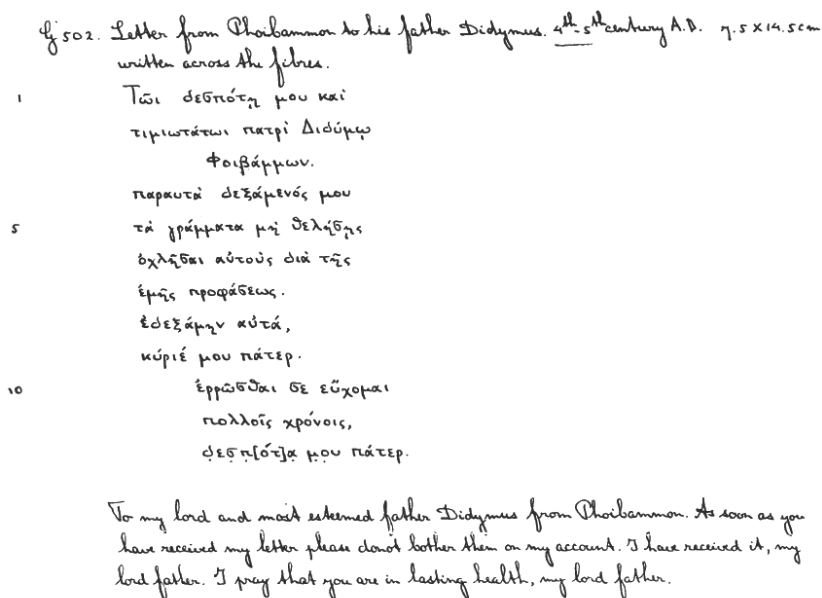 G 502. Letter from Phoibammon to his father Didymus. 4th-5th century A.D. 7.5 x 14.5 cm
written across the fibres.
1 Τῶι δεσπότῃ μου καὶ
τιμιωτάτωι πατρὶ Διδύμῳ
Φοιβάμμων.
παραυτὰ δεξάμενός μου
5 τὰ γράμματα μὴ θελήσῃς
ὀχλῆσαι αὐτοὺς διὰ τῆς
ἐμῆς προφάσεως.
ἐδεξάμην αὐτά,
κύριέ μου πάτερ.
10 ἐρρῶσθαι σε εὔχομαι
πολλοῖς χρόνοις,
δ̣ε̣σ̣π̣[ότ]α̣ μ̣ο̣υ̣ πάτερ.
To my lord and most esteemed father Didymus from Phoibammon. As soon as you
have received my letter please donot bother them on my account. I have received it, my
lord father. I pray that you are in lasting health, my lord father.